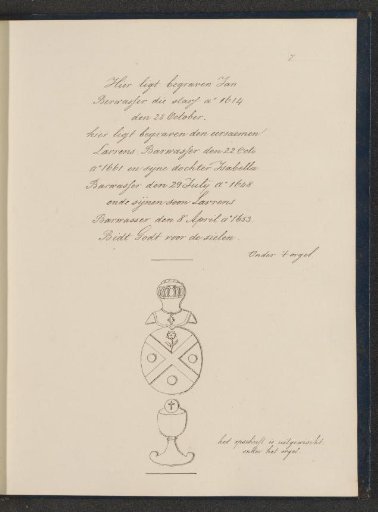 7.
Hier ligt begraven Jan
Berwasser die starf aº 1614
den 28 October.
hier ligt begraven den eersaemen
Lavrens Barwasser den 22 Octo
aº 1661 en syne dochter Isabella
Barwasser den 29 July aº 1648
ende sijnen soon Lavrens
Barwasser den 8 April aº 1653
Bidt Godt voor de zielen.
Onder 't orgel
het opschrift is uitgewischt.
onder het orgel.